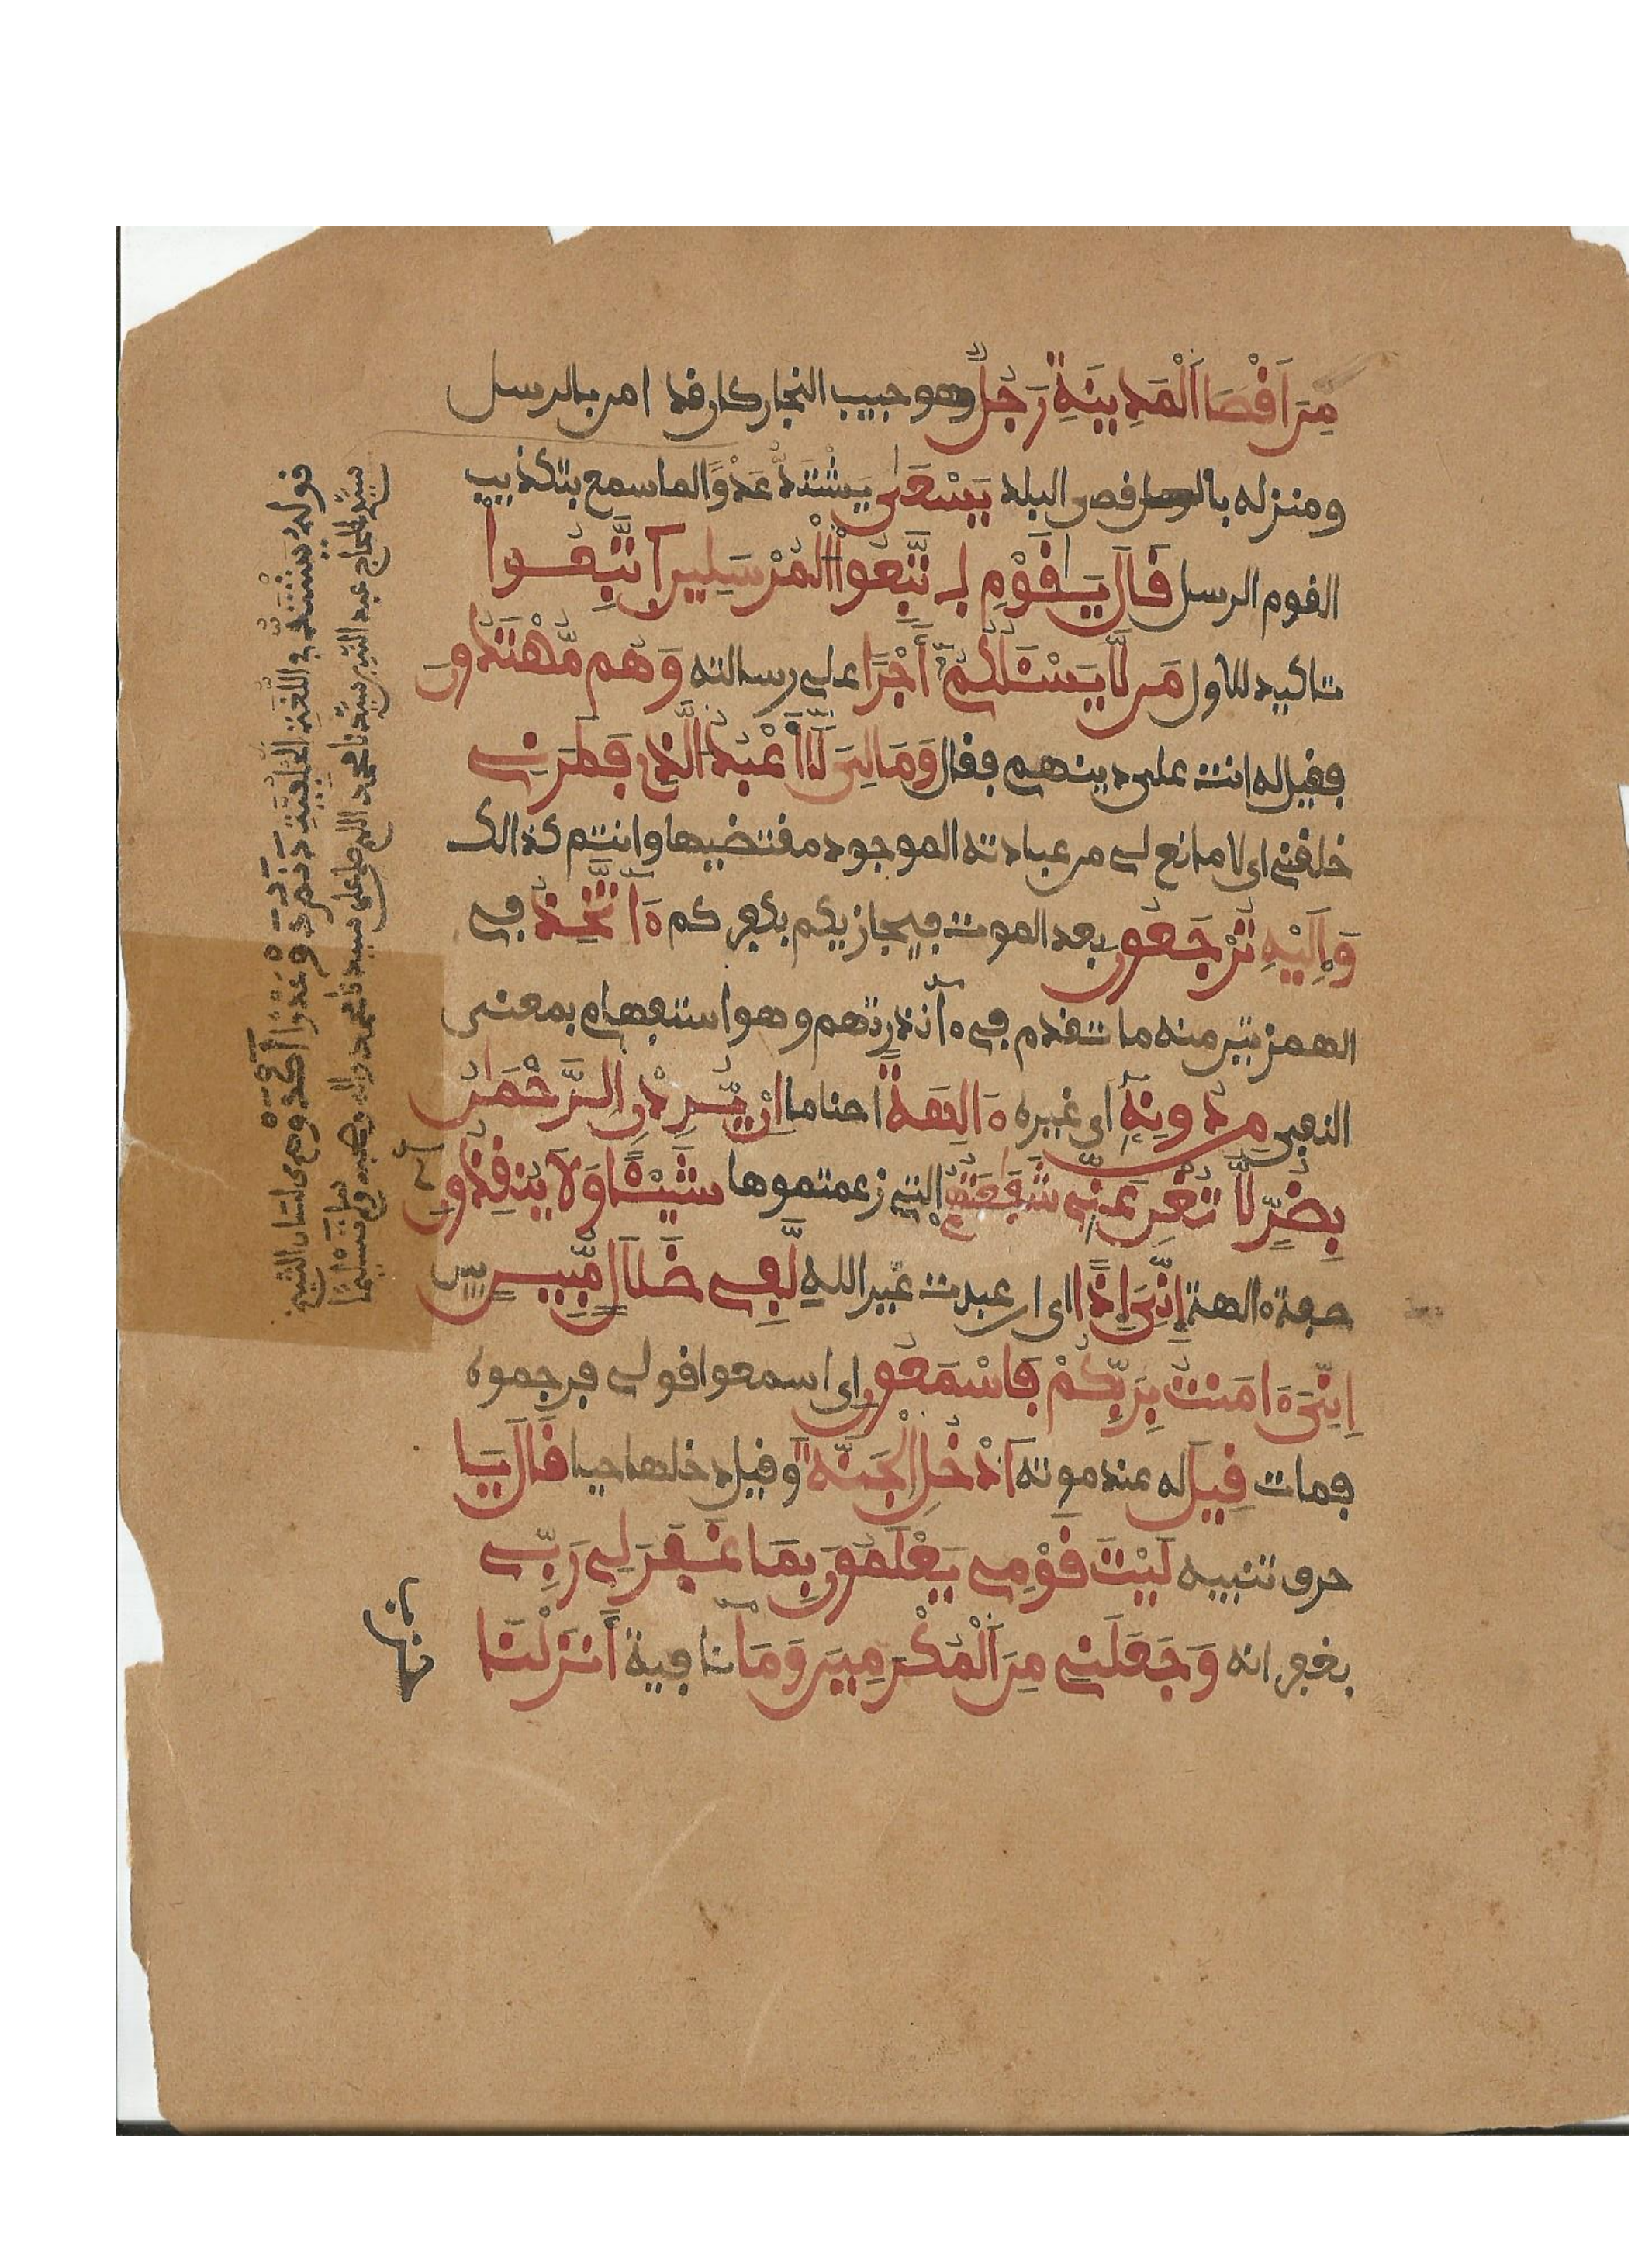 مِنَ اَقْصَا اَلْمَدِينَةِ رَجُلٌ وهو حبيب النجار كان قد امن بالرسل
ومنزله باقصى البلد يَسْعَىٰ يَشْتَدُّ عَدْوًا لما سمع بتكذيب
القوم الرسل قَالَ يَٰقَوْمِ اِتَّبِعُوا اْلْمُرْسَلِينَ اَتَّبِعُوا
تاكيد للاول مَن لَّا يَسْـَٔلُكُمُۥٓ أَجْرًا على رسالته وَهُم مُّهْتَدُونَ
فقيل له انت على دينهم فقال وَمَا لِىَ لَآ أَعْبُدُ اَلَّذِى فَطَرَنِى
خلقنى اى لا مانع لى من عبادته الموجود مقتضيها وانتم كذالك
وَإِلَيْهِ تُرْجَعُونَ بعد الموت فيجازيكم بكفركم ءَآتَّخِذُ فى
الهمزتين منه ما تقدم فى ءآنذرتهم وهو استفهام بمعنى
النفى مِن دُونِهِۦٓ اى غيره ءَالِهَةً اصناما اِنْ يُّرِدْنِ اِلرَّحْمَٰنُ
بِضُرٍّ لَّا تُغْنِ عَنِّى شَفَٰعَتُهُمْ التى زعمتموها شَيْـًٔا وَلَا يُنقِذُونِ
صفة ءالهة إِنِّىَ إِذًا اى ان عبدت غير الله لَّفِى ضَلَٰلٍ مُّبِينٍ
اِنِّىَ ءَامَنتُ بِرَبِّكُمْ فَاسْمَعُونِ اى اسمعوا قولى فرجموه
فمات قِيلَ له عند موته اَدْخُلِ اِلْجَنَّةَ وقيل دخلها حيا قَالَ يَا
حرف تنبيه لَيْتَ قَوْمِى يَعْلَمُونَ بِمَا غَفَرَ لِى رَبِّى
بغفرانه وَجَعَلَنِى مِنَ اَلْمُكْرَمِينَ وَمَآ نافية أَنزَلْنَا
قوله يشتد فى اللغة
سيد الحاج عبد سيدنا محمد اللهم صل على سيدنا محمد واله وصحبه وسلم تسليما